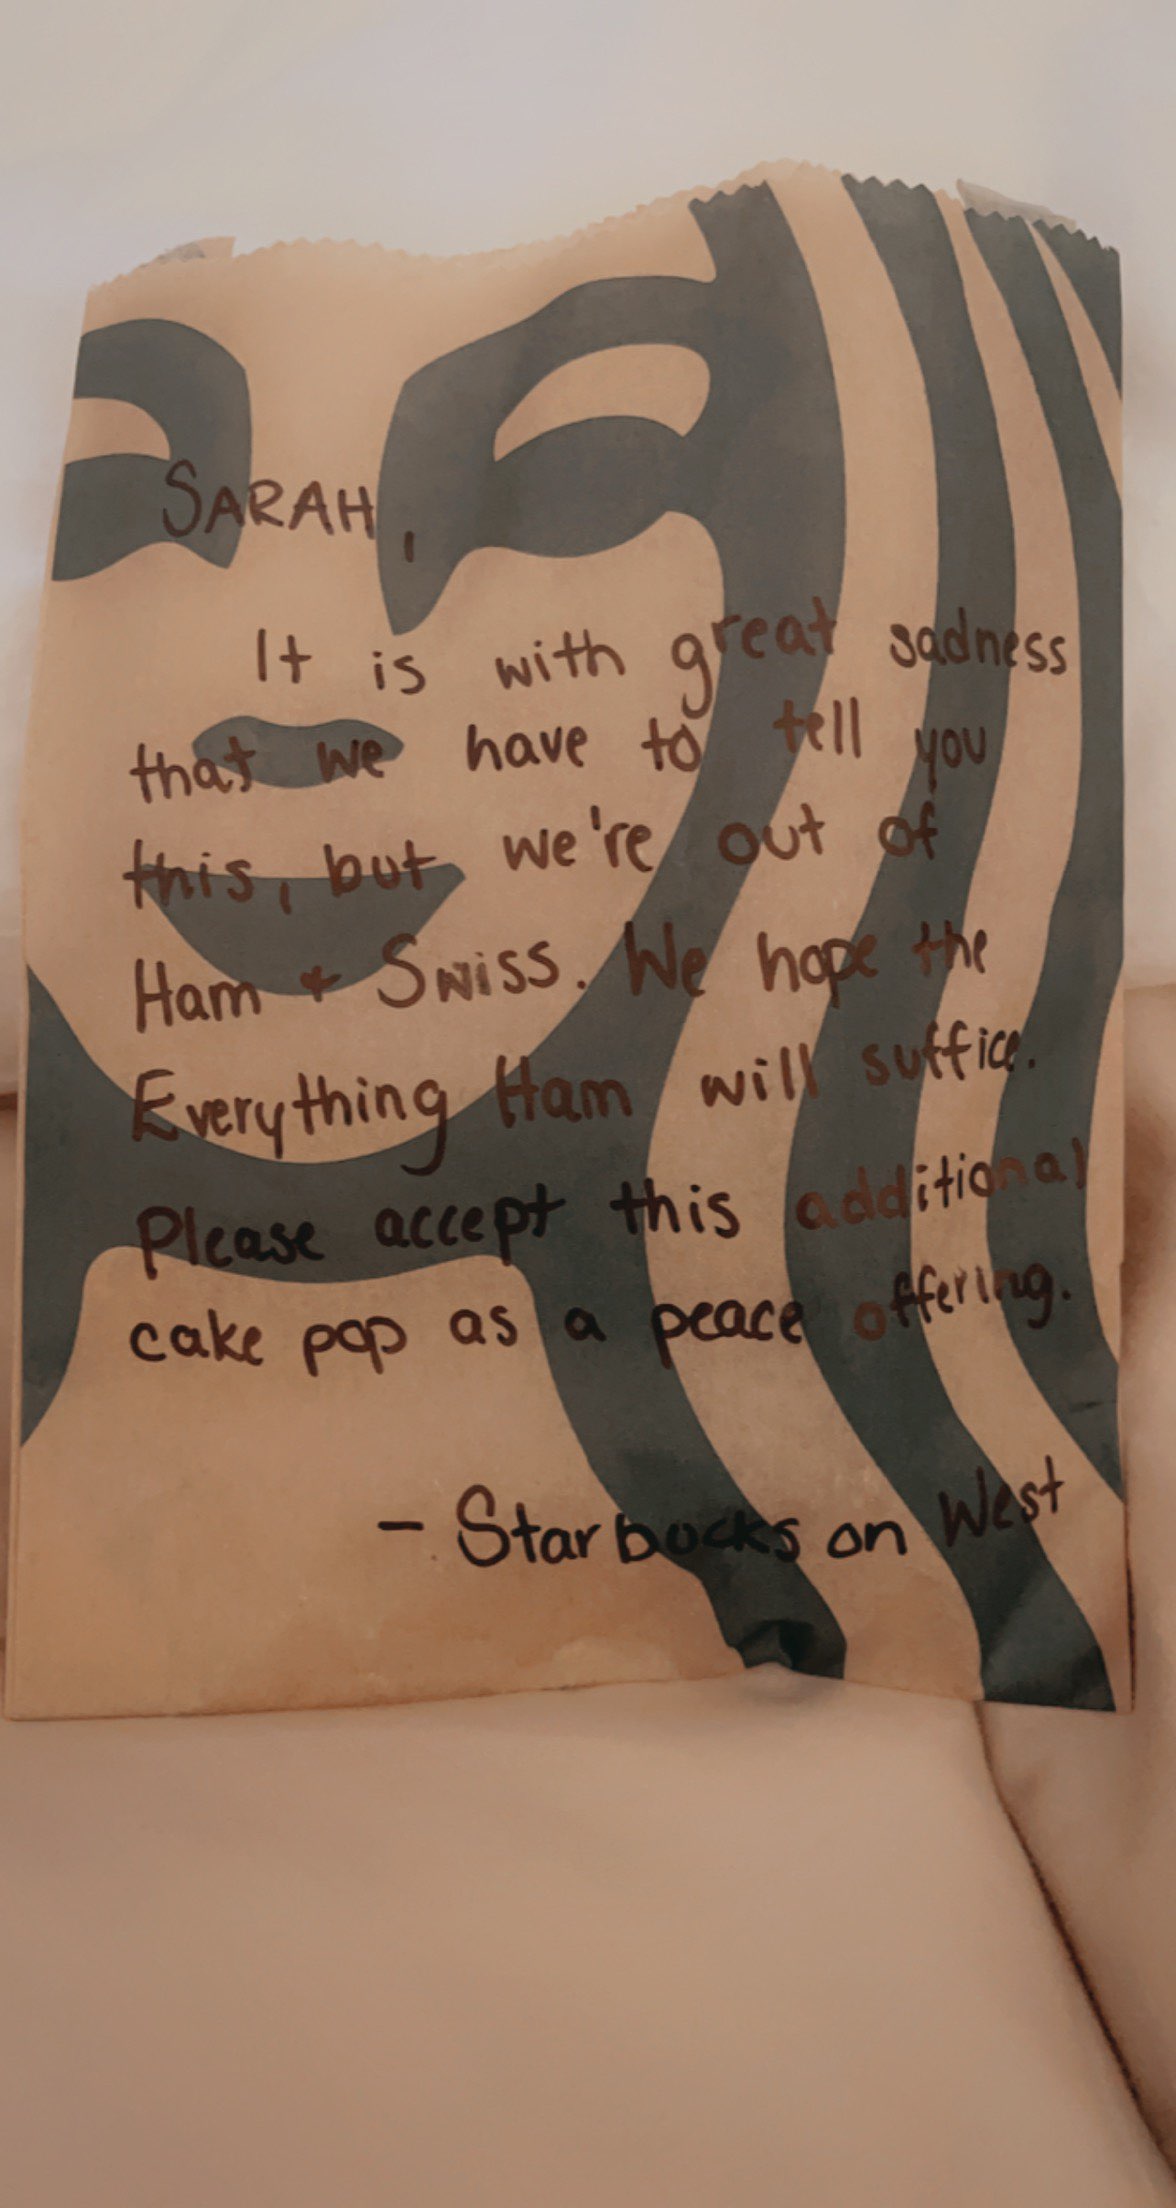 SARAH,
It is with great sadness
that we have to tell you
this, but we're out of
Ham & Swiss. We hope the
Everything Ham will suffice.
Please accept this additional
cake pop as a peace offering.
- Starbucks on West